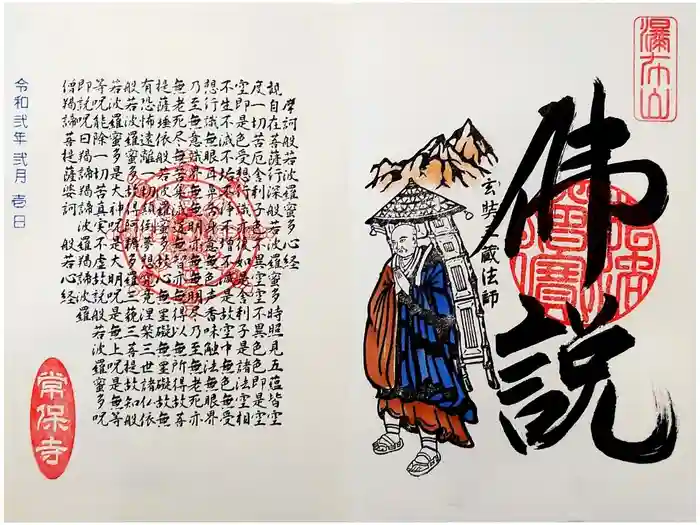 瀑布山
佛説
玄奘三蔵法師
摩訶般若波羅蜜多心経
観自在菩薩行深般若波羅蜜多時照見五蘊皆空
度一切苦厄舎利子色不異空空不異色色即是空
空即是色受想行識亦復如是舎利子是諸法空相
不生不滅不垢不浄不増不減是故空中無色無受
想行識無眼耳鼻舌身意無色声香味触法無眼界
乃至無意識界無無明亦無無明尽乃至無老死亦
無老死尽無苦集滅道無智亦無得以無所得故菩
提薩埵依般若波羅蜜多故心無罣礙無罣礙故無
有恐怖遠離一切顛倒夢想究竟涅槃三世諸仏依
般若波羅蜜多故得阿耨多羅三藐三菩提故知般
若波羅蜜多是大神呪是大明呪是無上呪是無等
等呪能除一切苦真実不虚故説般若波羅蜜多呪
即説呪曰羯諦羯諦波羅羯諦波羅
僧羯諦菩提薩婆訶 般若心経
令和弐年 弐月 壱日
常保寺